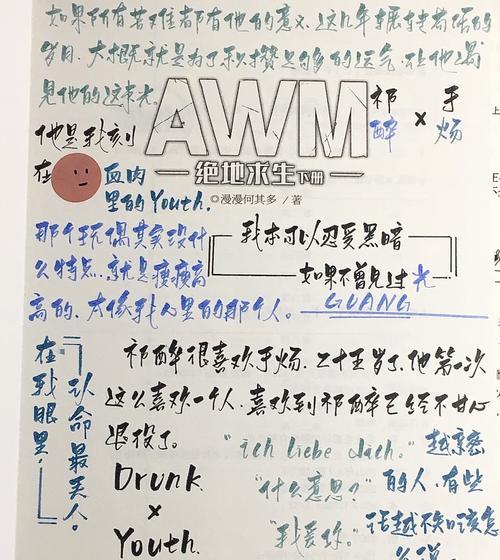 如果所有苦难都有他的意义,这几年辗转着活的
岁月,大概就是为了积攒足够多的运气,让他遇
见他的这束光。
AWM
绝地求生下册
◎漫漫何其多 / 著
祁醉
×
于炀
他是我刻
在
血肉
里的Youth.
那个玩偶其实没什
么特点,就是瘦瘦高
高的,太像我心里的那个人。
我本可以忍受黑暗
如果不曾见过光
GUANG
在我眼里,
以命最美人。
祁醉很喜欢于炀,二十五岁了,他第一次
这么喜欢一个人,喜欢到祁醉已经不甘心
退役了。
Drunk
×
Youth.
"ich liebe dich."
"什么意思?"
"我爱你。"
越亲密
的人,有些
话越不知该怎
么说